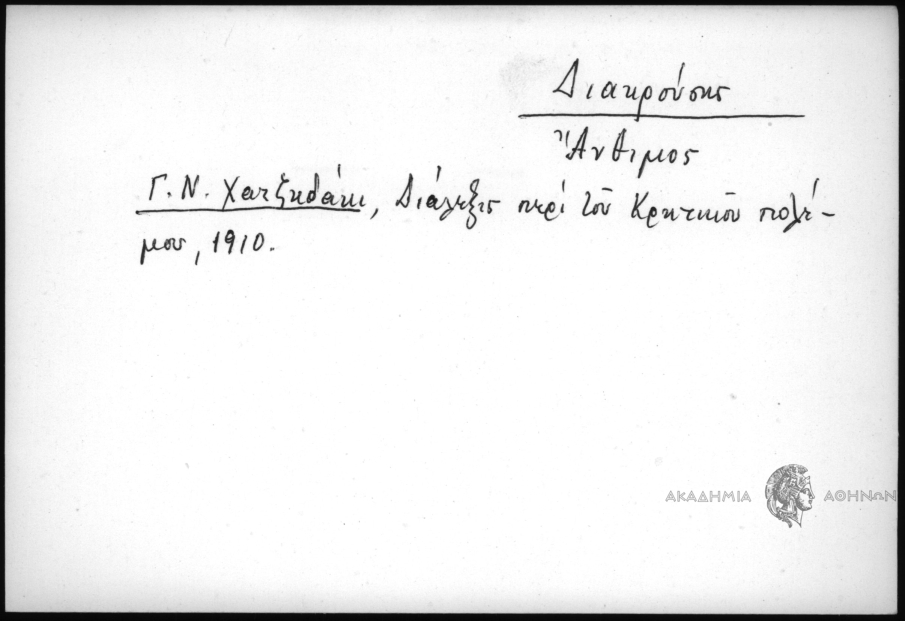 Διακρούσης
Ἄνθιμος
Γ. Ν. Χατζηδάκι, Διάλεξις περὶ τοῦ Κρητικοῦ πολέ-
μου, 1910.
ΑΚΑΔΗΜΙΑ ΑΘΗΝΩΝ